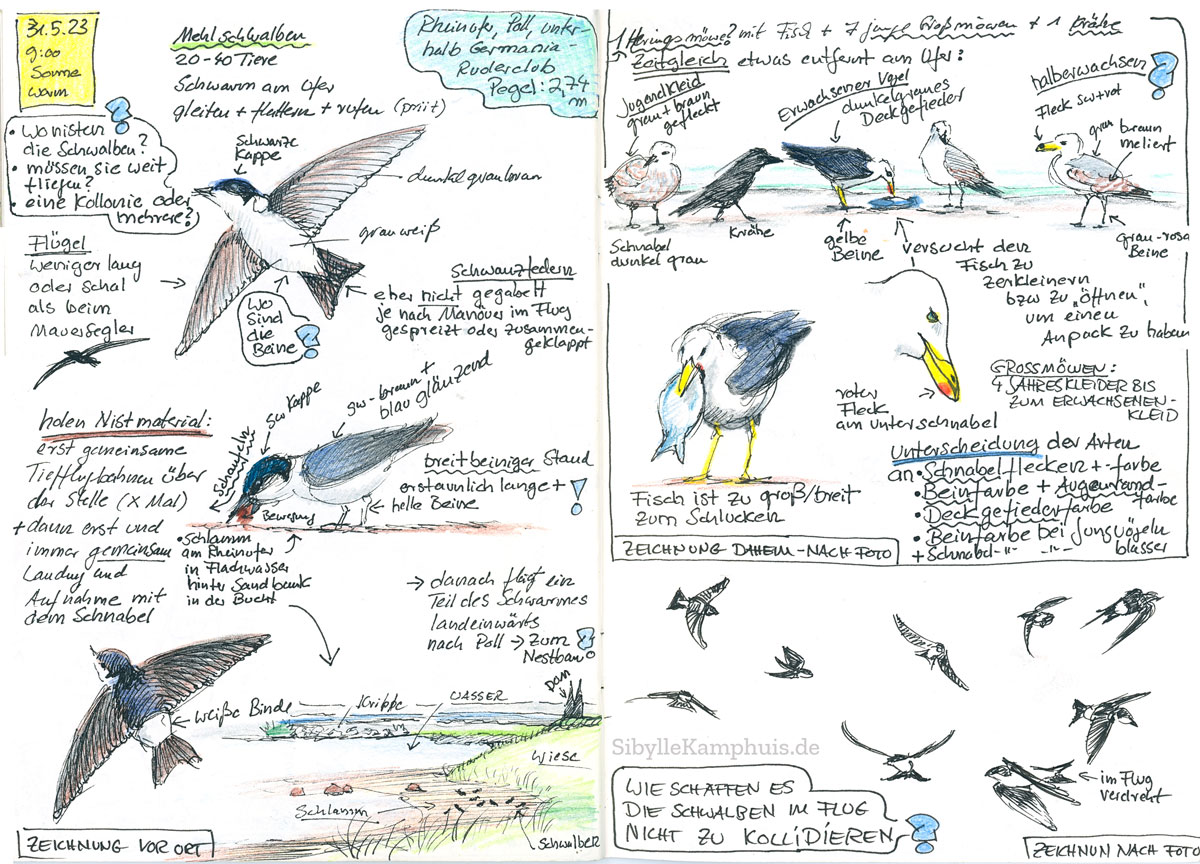 31.5.23
9:00
Sonne
warm
Mehlschwalben
20-40 Tiere
Schwarm am Ufer
gleiten + flattern + rufen (priit)
Rheinufer, Poll, unter-
halb Germania-
Ruderclub
Pegel: 2,74
m
• Wo nisten
die Schwalben?
• müssen sie weit
fliegen?
• eine Kollonie oder
mehrere?
Schwarze
Kappe
dunkelgraubraun
grauweiß
Flügel
weniger lang
oder schal
als beim
Mauersegler
Wo
sind
die
Beine
?
Schwanzfedern
eher nicht gegabelt
je nach Manöver im Flug
gespreizt oder zusammen-
geklappt
holen Nistmaterial:
erst gemeinsame
Tiefflugbahnen über
der Stelle (x Mal)
+ dann erst und
immer gemeinsam
Landung und
Aufnahme mit
dem Schnabel
sw Kappe
sw-braun +
blau glänzend
Bewegung
breitbeiniger Stand
erstaunlich lange +
helle Beine
!
• Schlamm
am Rheinufer
in Flachwasser
hinter Sandbank
in der Bucht
→ danach fliegt ein
Teil des Schwarmes
landeinwärts
nach Poll → zum
Nestbau
?
weiße Binde
Krippe
WASSER
Dom
Wiese
Schlamm
Schwalben
ZEICHNUNG VOR ORT
1 Heringsmöwe? mit Fisch + 7 junge Großmöwen + 1 Krähe
→ Zeitgleich etwas entfernt am Ufer:
Jugendkleid
grau + braun
gefleckt
Erwachsener Vogel
dunkelgraues
Deckgefieder
halberwachsen
?
Fleck sw+rot
grau
braun
meliert
Schnabel
dunkelgrau
Krähe
gelbe
Beine
versucht den
Fisch zu
zerkleinern
bzw zu "öffnen",
um einen
Anpack zu haben
grau-rosa
Beine
roter
Fleck
am Unterschnabel
GROSSMÖWEN:
4 JAHRESKLEIDER BIS
ZUM ERWACHSENEN-
KLEID
Fisch ist zu groß/breit
zum Schlucken
Unterscheidung der Arten
an • Schnabelflecken + -farbe
• Beinfarbe + Augenrand-
farbe
• Deckgefiederfarbe
• Beinfarbe bei Jungvögeln
+ Schnabel -"- -"- blasser
ZEICHNUNG DAHEIM - NACH FOTO
SibylleKamphuis.de
WIE SCHAFFEN ES
DIE SCHWALBEN IM FLUG
NICHT ZU KOLLIDIEREN
?
im Flug
verdreht
ZEICHNUN NACH FOTO